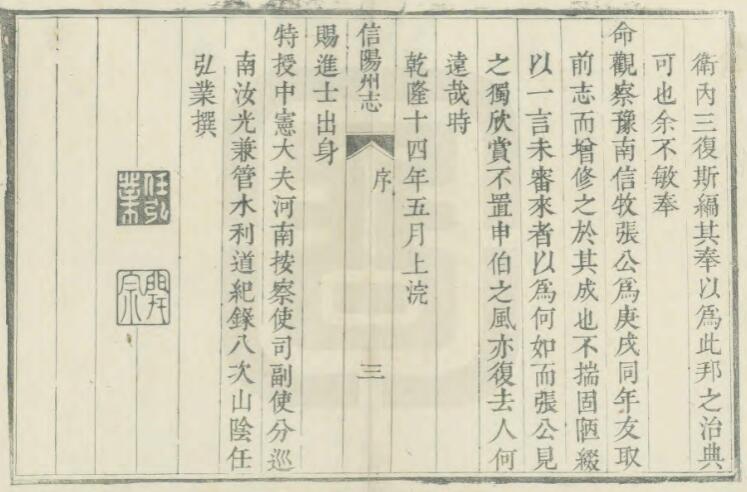 衙內三復斯編其奉以爲此邦之治典
可也余不敏奉
命觀察豫南信牧張公爲庚戌同年友取
前志而增修之於其成也不揣固陋綴
以一言未審來者以爲何如而張公見
之獨欣賞不置申伯之風亦復去人何
遠哉時
乾隆十四年五月上浣
信陽州志
序
三
賜進士出身
特授中憲大夫河南按察使司副使分巡
南汝光兼管水利道紀錄八次山陰任
弘業撰
任弘業